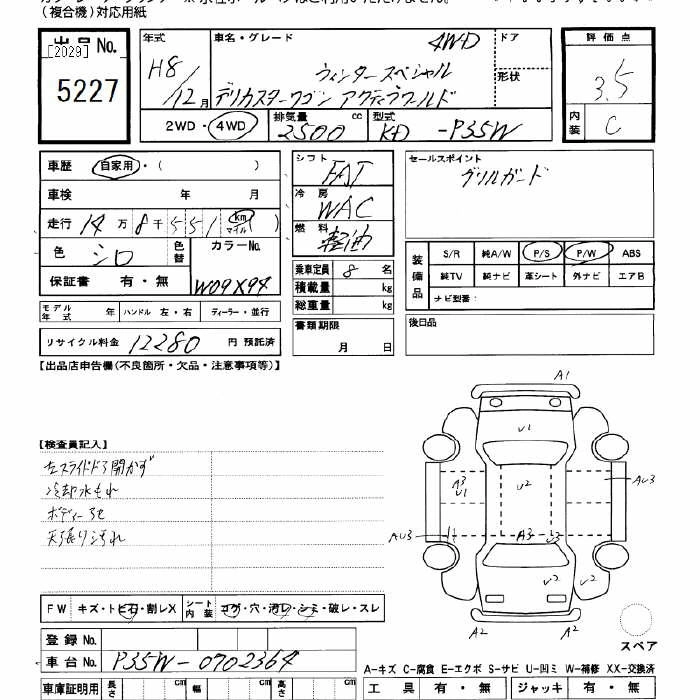 (複合機)対応用紙
出品No.
[2029]
5227
年式 H8/12月
車名・グレード 4WD
ウィンタースペシャル
デリカスターワゴン アクティブワールド
ドア
形状
評価点 3.5
内装 C
2WD・4WD
排気量 2500 cc
型式 KD -P35W
車歴 自家用・( )
車検 年 月
走行 14万8千551 km マイル ( )
色 シロ 色替
カラーNo. W09X94
保証書 有・無
シフト FAT
冷房 WAC
燃料 軽油
乗車定員 8 名
積載量 kg
総重量 kg
書類期限 月 日
セールスポイント
グリルガード
装備品 S/R 純A/W P/S P/W ABS
純TV 純ナビ 革シート 外ナビ エアB
ナビ型番:
後日品
モデル年式 年 ハンドル 左・右 ディーラー・並行
リサイクル料金 12280 円 預託済
【出品店申告欄(不良箇所・欠品・注意事項等)】
【検査員記入】
左スライドドア開かず
冷却水もれ
ボディーうせ
天張り汚れ
A1
U1
A3
U1
U2
AU3
AU3
A3
U3
U2
U2
A2
A2
スペア
FW キズ・トビ石・割レX シート内装 コゲ・穴・汚レ・シミ・破レ・スレ
登録No.
車台No. P35W-0702364
A-キズ C-腐食 E-エクボ S-サビ U-凹ミ W-補修 XX-交換済
車庫証明用 長さ cm 幅 cm 高さ cm
工具 有・無 ジャッキ 有・無